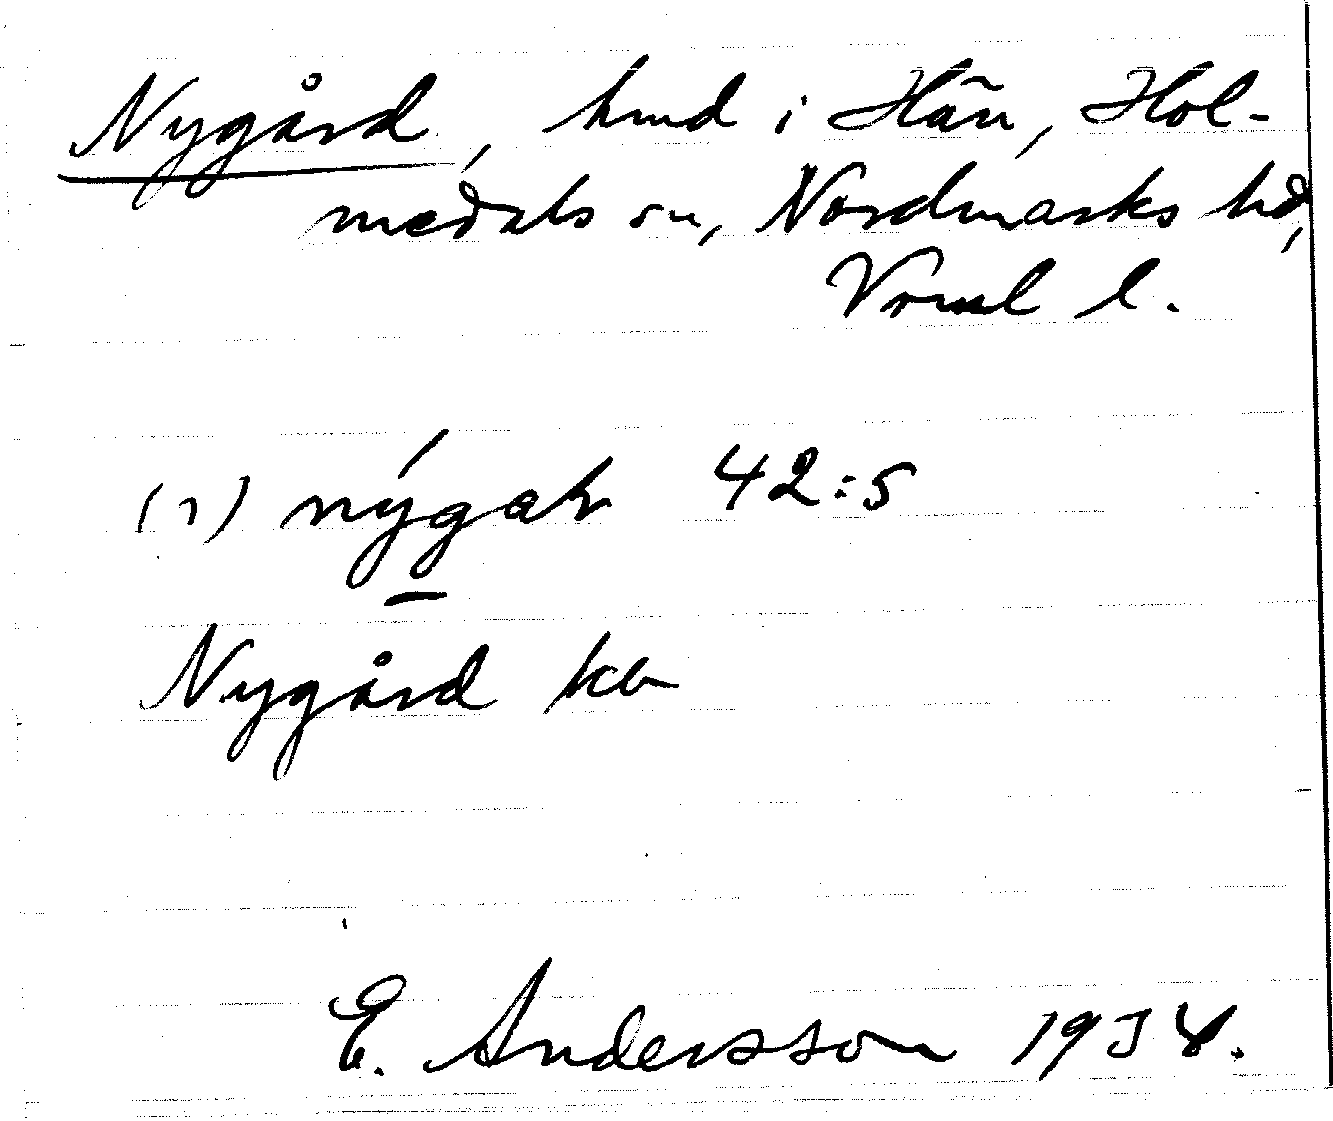 Nygård, hmd i Hån, Hol-
medals sn, Nordmarks hd,
Vrml l.
(1) nýgaḷ 42:5
Nygård kb
E. Andersson 1934.